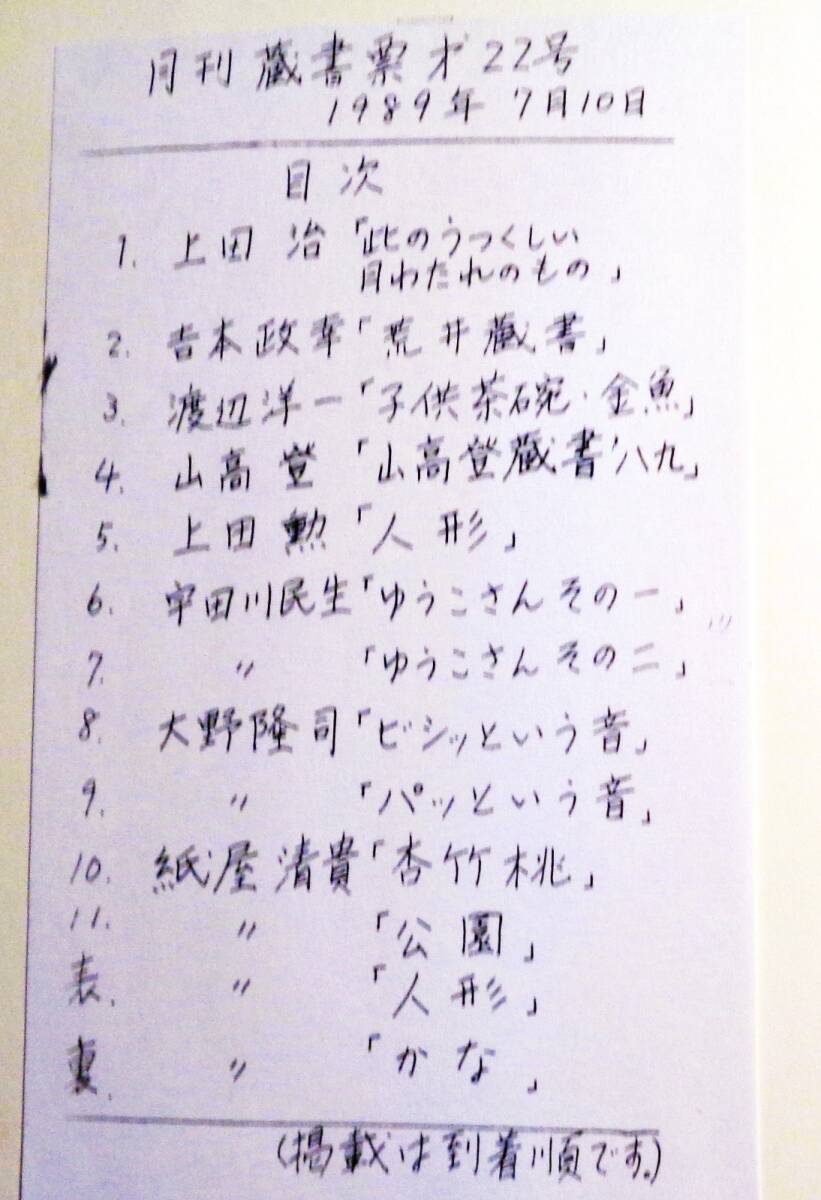 月刊蔵書票才22号
1989年 7月10日
目次
1. 上田 治「此のうつくしい
目わたれのもの」
2. 吉本政幸「荒井蔵書」
3. 渡辺洋一「子供茶碗・金魚」
4. 山高登「山高登蔵書'八九」
5. 上田 勲「人形」
6. 宇田川民生「ゆうこさんその一」
7. 〃 「ゆうこさんその二」
8. 大野隆司「ビシッという音」
9. 〃 「パッという音」
10. 紙屋清貴「杏竹桃」
11. 〃 「公園」
表. 〃 「人形」
裏. 〃 「かな」
(掲載は到着順です。)